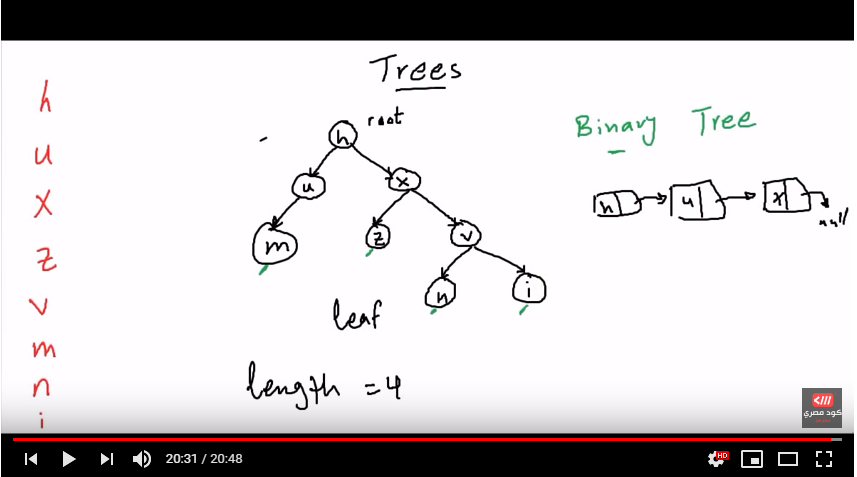 Trees
h
u
x
z
v
m
n
i
root
h
u
x
m
z
v
n
i
leaf
length = 4
Binary Tree
h
u
x
null
كود مصري
20:31 / 20:48
HD